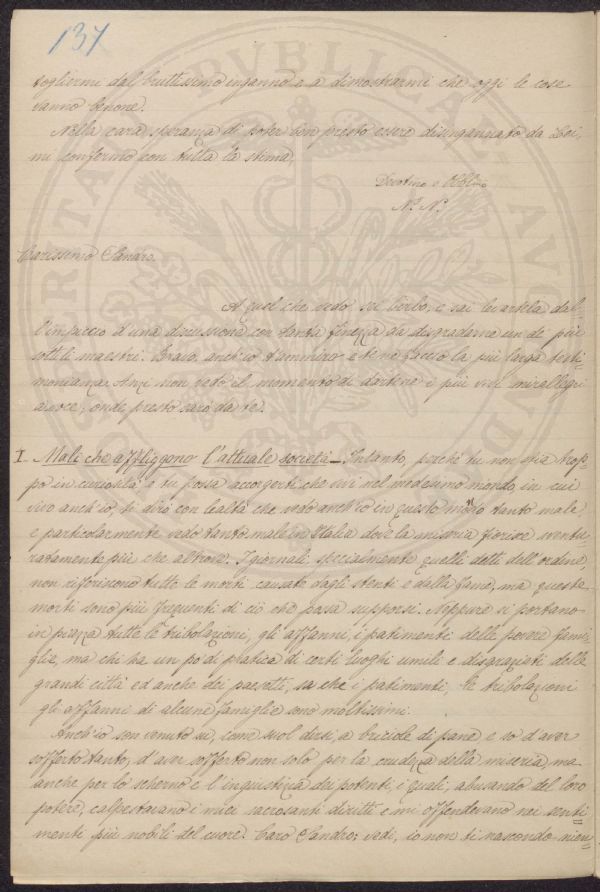 137
togliermi dal bruttissimo inganno e a dimostrarmi che oggi le cose
vanno benone.
Nella cara speranza di poter ben presto essere disingannato da Lei,
mi confermo con tutta la stima,
Devotmo e Obblmo
N. N.
Carissimo Sandro,
A quel che vedo sei furbo, e sai levartela dal-
l'impaccio d'una discussione con tanta finezza da disgradarne un de' più
sottili maestri. Bravo, anch'io t'ammiro e te ne faccio la più larga testi-
monianza. Anzi non vedo il momento di dartene i più vivi mirallegri
a voce, onde presto sarò da te.
I. Mali che affliggono l'attuale società_ Intanto, perchè tu non stia trop-
po in curiosità e tu possa accorgerti che vivi nel medesimo mondo, in cui
vivo anch'io, ti dirò con lealtà che vedo anch'io in questo mondo tanto male
e particolarmente vedo tanto male in Italia dove la miseria fiorisce sventu-
ratamente più che altrove. I giornali, specialmente quelli detti dell'ordine,
non riferiscono tutte le morti causate dagli stenti e dalla fame, ma queste
morti sono più frequenti di ciò che possa supporsi. Neppure si portano
in piazza tutte le tribolazioni, gli affanni, i patimenti delle povere fami-
glie, ma chi ha un po' di pratica di certi luoghi umili e disgraziati delle
grandi città ed anche dei paesetti, sa che i patimenti, le tribolazioni
gli affanni di alcune famiglie sono moltissimi.
Anch'io son venuto su, come suol dirsi, a briciole di pane e so d'aver
sofferto tanto, d'aver sofferto non solo per la crudezza della miseria, ma
anche per lo scherno e l'ingiustizia dei potenti, i quali, abusando del loro
potere, calpestavano i miei sacrosanti diritti e mi offendevano nei senti=
menti più nobili del cuore. Caro Sandro, vedi, io non ti nascondo nien=